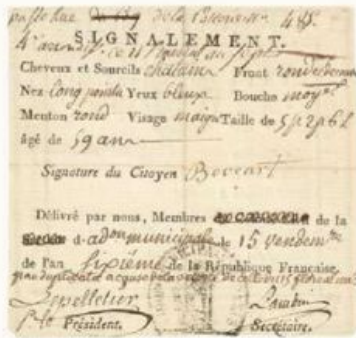 passe rue de la 48.
SIGNALEMENT.
4e arrondt. ce 21
Cheveux et Sourcils chatain Front rond
Nez long pointu Yeux bleux Bouche moyne
Menton rond Visage maigre Taille de 5 p 2 p 6 l
âgé de 59 ans
Signature du Citoyen Bovcart
Délivré par nous, Membres de la
d'adon municipale le 15 vendemre
de l'an sixiéme de la République Française,
par duplicata 15 floreal
Lepelletier
Président. Secrétaire.